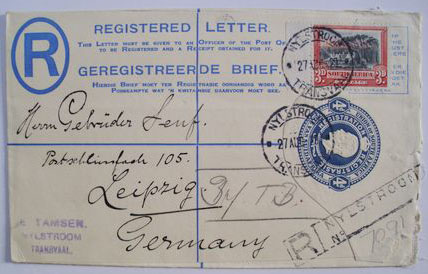 REGISTERED LETTER.
THIS LETTER MUST BE GIVEN TO AN OFFICER OF THE POST OF
TO BE REGISTERED AND A RECEIPT OBTAINED FOR IT.
GEREGISTREERDE BRIEF.
HIERDIE BRIEF MOET TER REGISTRASIE OORGEHANDIG WORD AA
POSBEAMPTE WAT 'N KWITANSIE DAARVOOR MOET GEE.
R
NYLSTROOM
27 AUG
TRANSVAAL
3D SOUTH AFRICA 3D
NYLSTROOM
27 AUG
TRANSVAAL
Herrn Gebrüder Senf.
Postschliessfach 105.
Leipzig
Germany
TAMSEN.
NYLSTROOM
TRANSVAAL.
R
NYLSTROOM
No